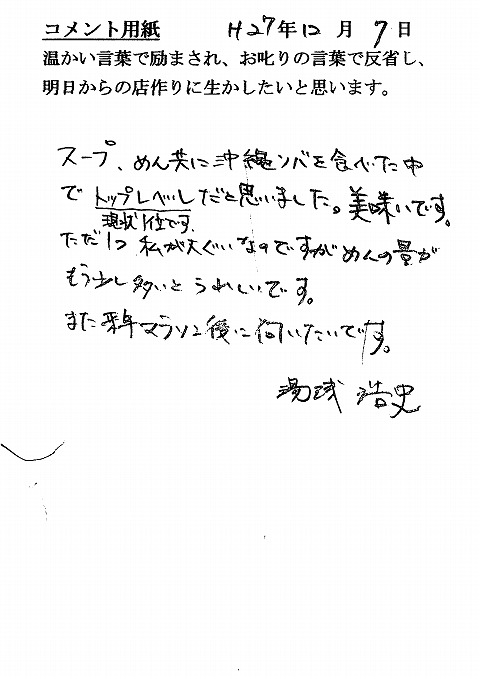 コメント用紙 H27年12月7日
温かい言葉で励まされ、お叱りの言葉で反省し、
明日からの店作りに生かしたいと思います。
スープ、めん共に沖縄ソバを食べた中
でトップレベルだと思いました。美味いです。
現状1位です。
ただ1つ 私が大ぐいなのですがめんの量が
もう少し多いとうれしいです。
また来年マラソン後に伺いたいです。
湯浅 浩史